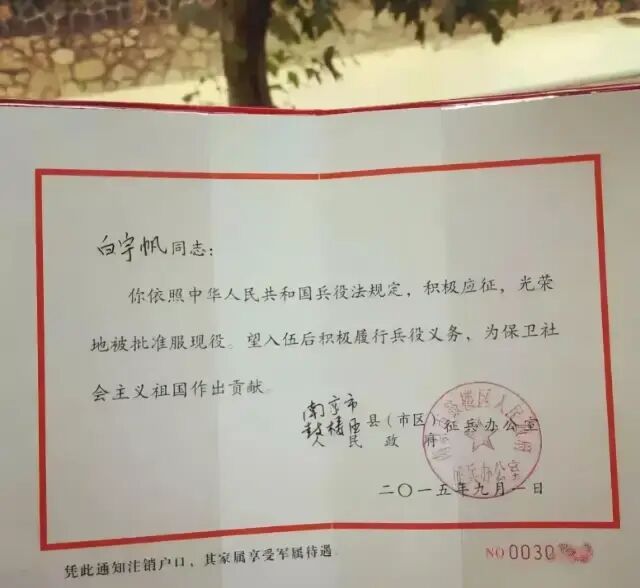 白宇帆同志：
你依照中华人民共和国兵役法规定，积极应征，光荣
地被批准服现役。望入伍后积极履行兵役义务，为保卫社
会主义祖国作出贡献。
南京市
鼓楼区 县（市区）征兵办公室
人民政府
二〇一五年九月一日
征兵办公室
凭此通知注销户口，其家属享受军属待遇。
NO 0030